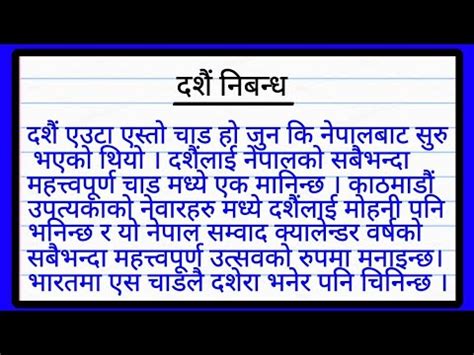 दशैं निबन्ध
दशैं एउटा एस्तो चाड हो जुन कि नेपालबाट सुरु
भएको थियो । दशैंलाई नेपालको सबैभन्दा
महत्त्वपूर्ण चाड मध्ये एक मानिन्छ । काठमाडौं
उपत्यकाको नेवारहरु मध्ये दशैंलाई मोहनी पनि
भनिन्छ र यो नेपाल सम्वाद क्यालेन्डर वर्षको
सबैभन्दा महत्त्वपूर्ण उत्सवको रुपमा मनाइन्छ।
भारतमा एस चाडलै दशेरा भनेर पनि चिनिन्छ ।